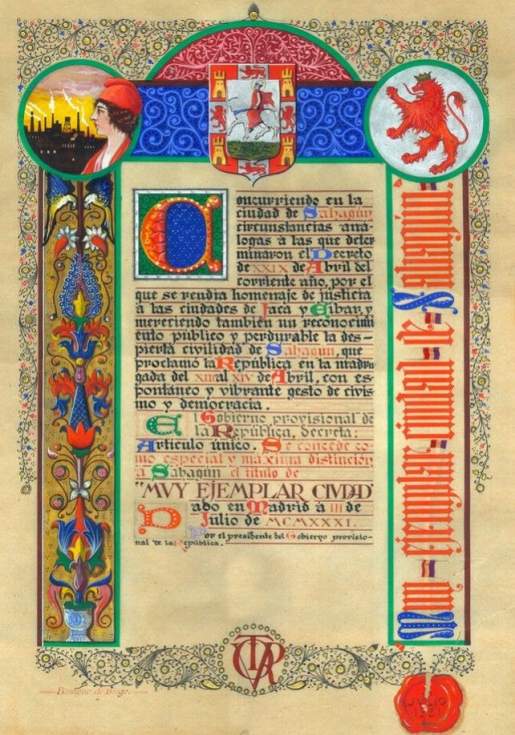 Concurriendo en la
ciudad de Sahagún
circunstancias aná-
logas a las que deter
minaron el Decreto
de XXIX de Abril del
corriente año, por el
que se rendia homenaje de justicia
á las ciudades de Jaca y Eibar, y
mereciendo también un reconocimi
ento público y perdurable la des-
pierta civilidad de Sahagún, que
proclamó la República en la madru
gada del XIII al XIV de Abril, con es-
pontáneo y vibrante gesto de civis
mo y democracia.
El Gobierno provisional de
la República, decreta:
Articulo único. Se concede co
mo especial y máxima distinción
á Sahagún el titulo de
"MVY EJEMPLAR CIVDAD"
Dado en Madrid à III de
Julio de MCMXXXI.
Por el presidente del Gobierno provisio-
nal de la República.
Muy ejemplar ciudad de Sahagún